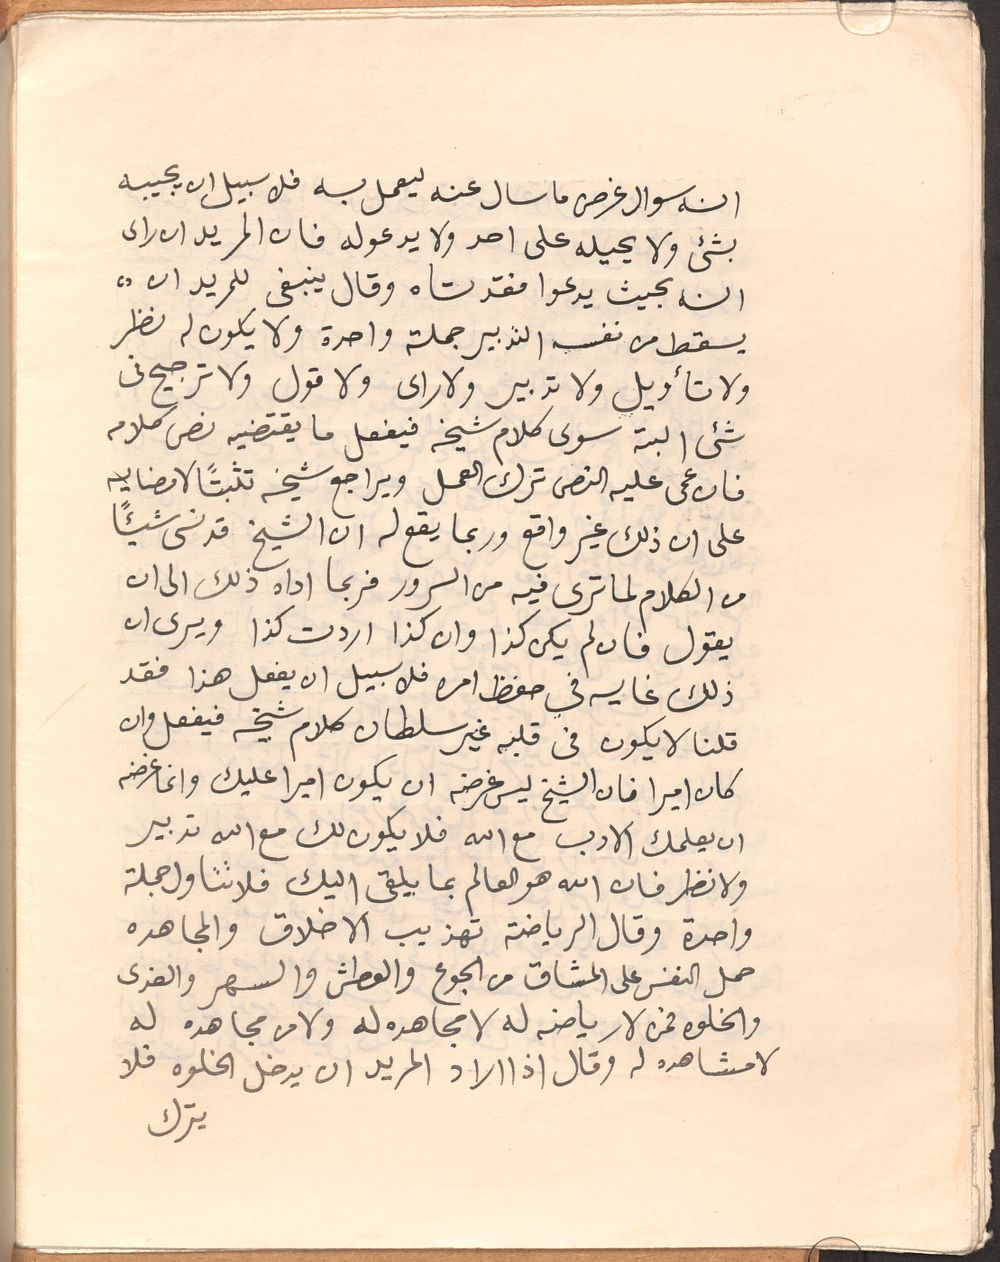 انه سوال غرض ما سال عنه ليعمل به فلا سبيل ان يجيبه
بشئ ولا يحيله على احد ولا يدعوله فان المريد ان راى
انه بحيث يدعوا فقد ساه وقال ينبغى للمريد ان
يسقط من نفسه التدبير جملة واحدة ولا يكون له نظر
ولا تأويل ولا تدبير ولا راى ولا قول ولا ترجيح فى
شئ البتة سوى كلام شيخه فيفعل ما يقتضيه نص كلامه
فان عمى عليه النص ترك العمل ويراجع شيخه تثبتًا لا
على ان ذلك غير واقع وربما يقع له ان الشيخ قد نسى شيئًا
من الكلام لما ترى فيه من السرور فربما اداه ذلك الى ان
يقول فان لم يكن كذا وان كذا اردت كذا ويرى ان
ذلك غايه في حفظ امره فلا سبيل ان يفعل هذا فقد
قلنا لا يكون فى قلبه غير سلطان كلام شيخه فيفعل وان
كان اميرا فان الشيخ ليس غرضه ان يكون اميرا عليك وانما غرضه
ان يعلمك الادب مع الله فلا يكون لك مع الله تدبير
ولا نظر فان الله هو العالم بما يلقى اليك فلا تتاول جملة
واحدة وقال الرياضة تهذيب الاخلاق والمجاهده
حمل النفس على المشاق من الجوع والعطش والسهر والعرى
والخلوه فمن لا رياضه له لا مجاهده له ولا من مجاهده له
لا مشاهده له وقال اذا اراد المريد ان يدخل الخلوه فلا
يترك